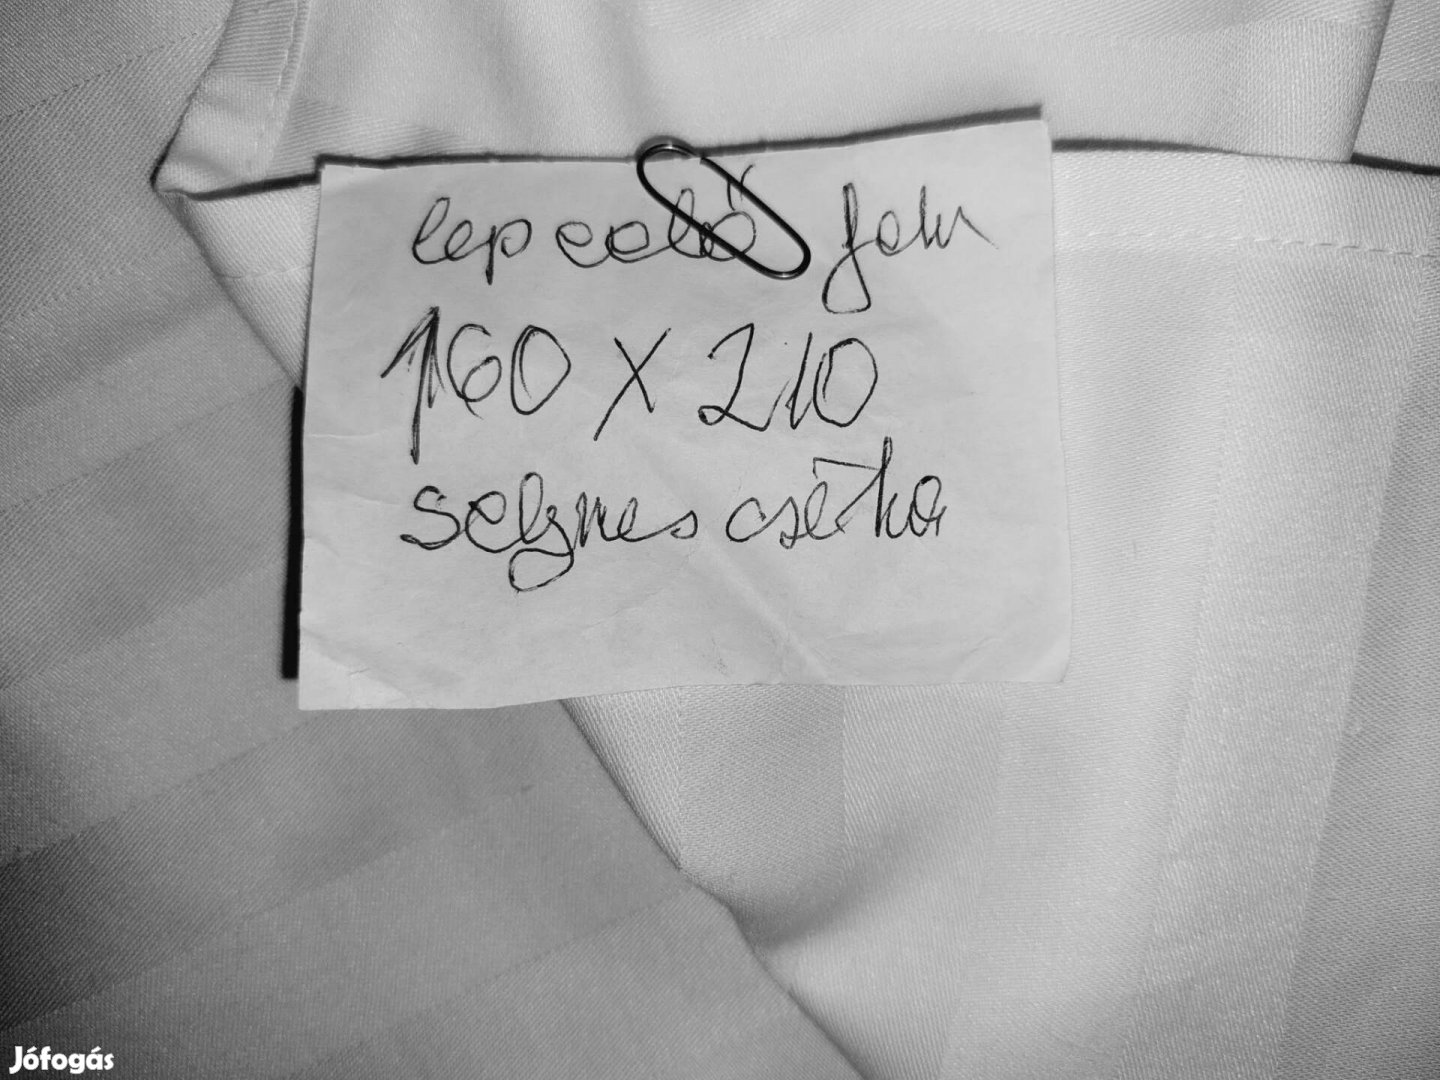 lepedő fehér
160 X 210
selymes csíkos
Jófogás